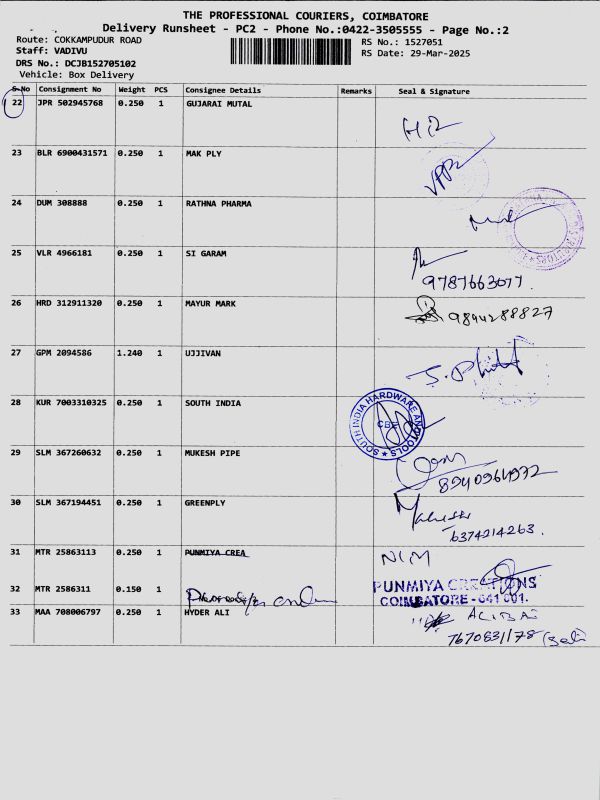 THE PROFESSIONAL COURIERS, COIMBATORE
Delivery Runsheet - PC2 - Phone No.:0422-3505555 - Page No.:2
Route: COKKAMPUDUR ROAD
RS No.: 1527051
Staff: VADIVU
RS Date: 29-Mar-2025
DRS No.: DCJB152705102
Vehicle: Box Delivery
S.No Consignment No Weight PCS Consignee Details Remarks Seal & Signature
22 JPR 502945768 0.250 1 GUJARAI MUTAL
23 BLR 6900431571 0.250 1 MAK PLY
24 DUM 308888 0.250 1 RATHNA PHARMA
25 VLR 4966181 0.250 1 SI GARAM
9787663077.
26 HRD 312911320 0.250 1 MAYUR MARK
9894288827
27 GPM 2094586 1.240 1 UJJIVAN
28 KUR 7003310325 0.250 1 SOUTH INDIA
SOUTH INDIA HARDWARE AND TOOLS
CBE
29 SLM 367260632 0.250 1 MUKESH PIPE
8940964972
30 SLM 367194451 0.250 1 GREENPLY
6374214263.
31 MTR 25863113 0.250 1 PUNMIYA CREA
32 MTR 2586311 0.150 1
PUNMIYA CREATIONS
COIMBATORE - 641 001.
33 MAA 708006797 0.250 1 HYDER ALI
7670831178